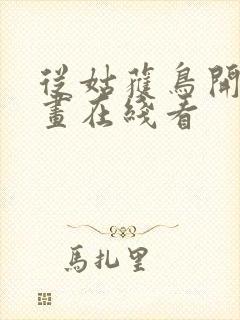 從姑獲鳥開
畫在綫看
馬扎里